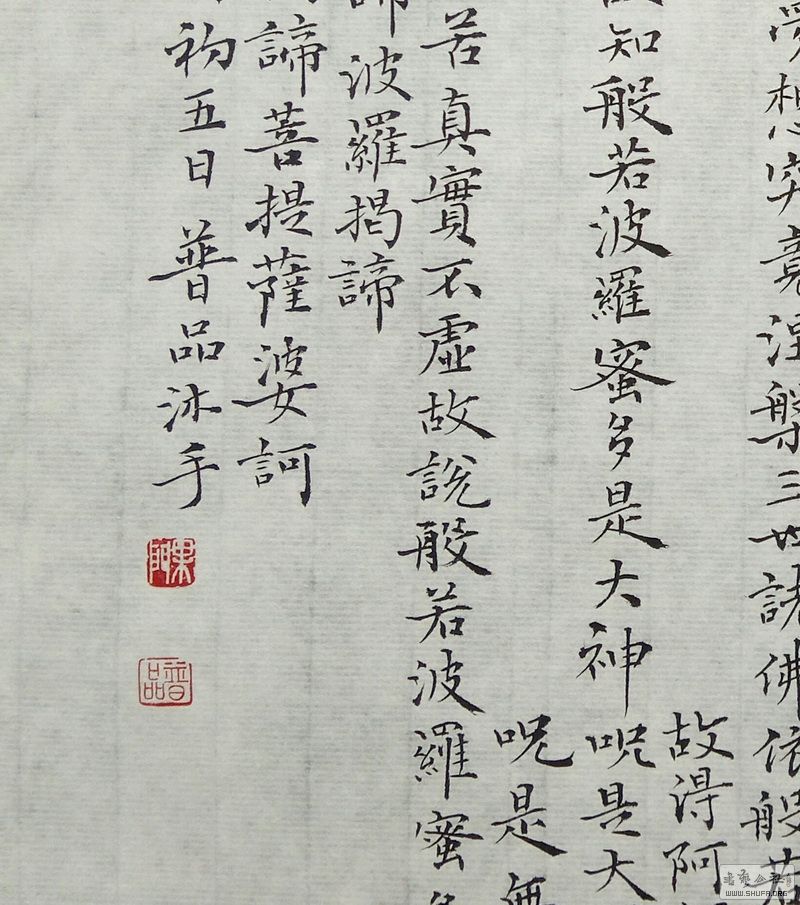 夢想究竟涅槃三世諸佛依般若
故得阿
知般若波羅蜜多是大神呪是大
呪是無
苦真實不虛故說般若波羅蜜多
諦波羅揭諦
諦菩提薩婆訶
初五日普品沐手
陳
普品
WWW.SHUFA.ORG